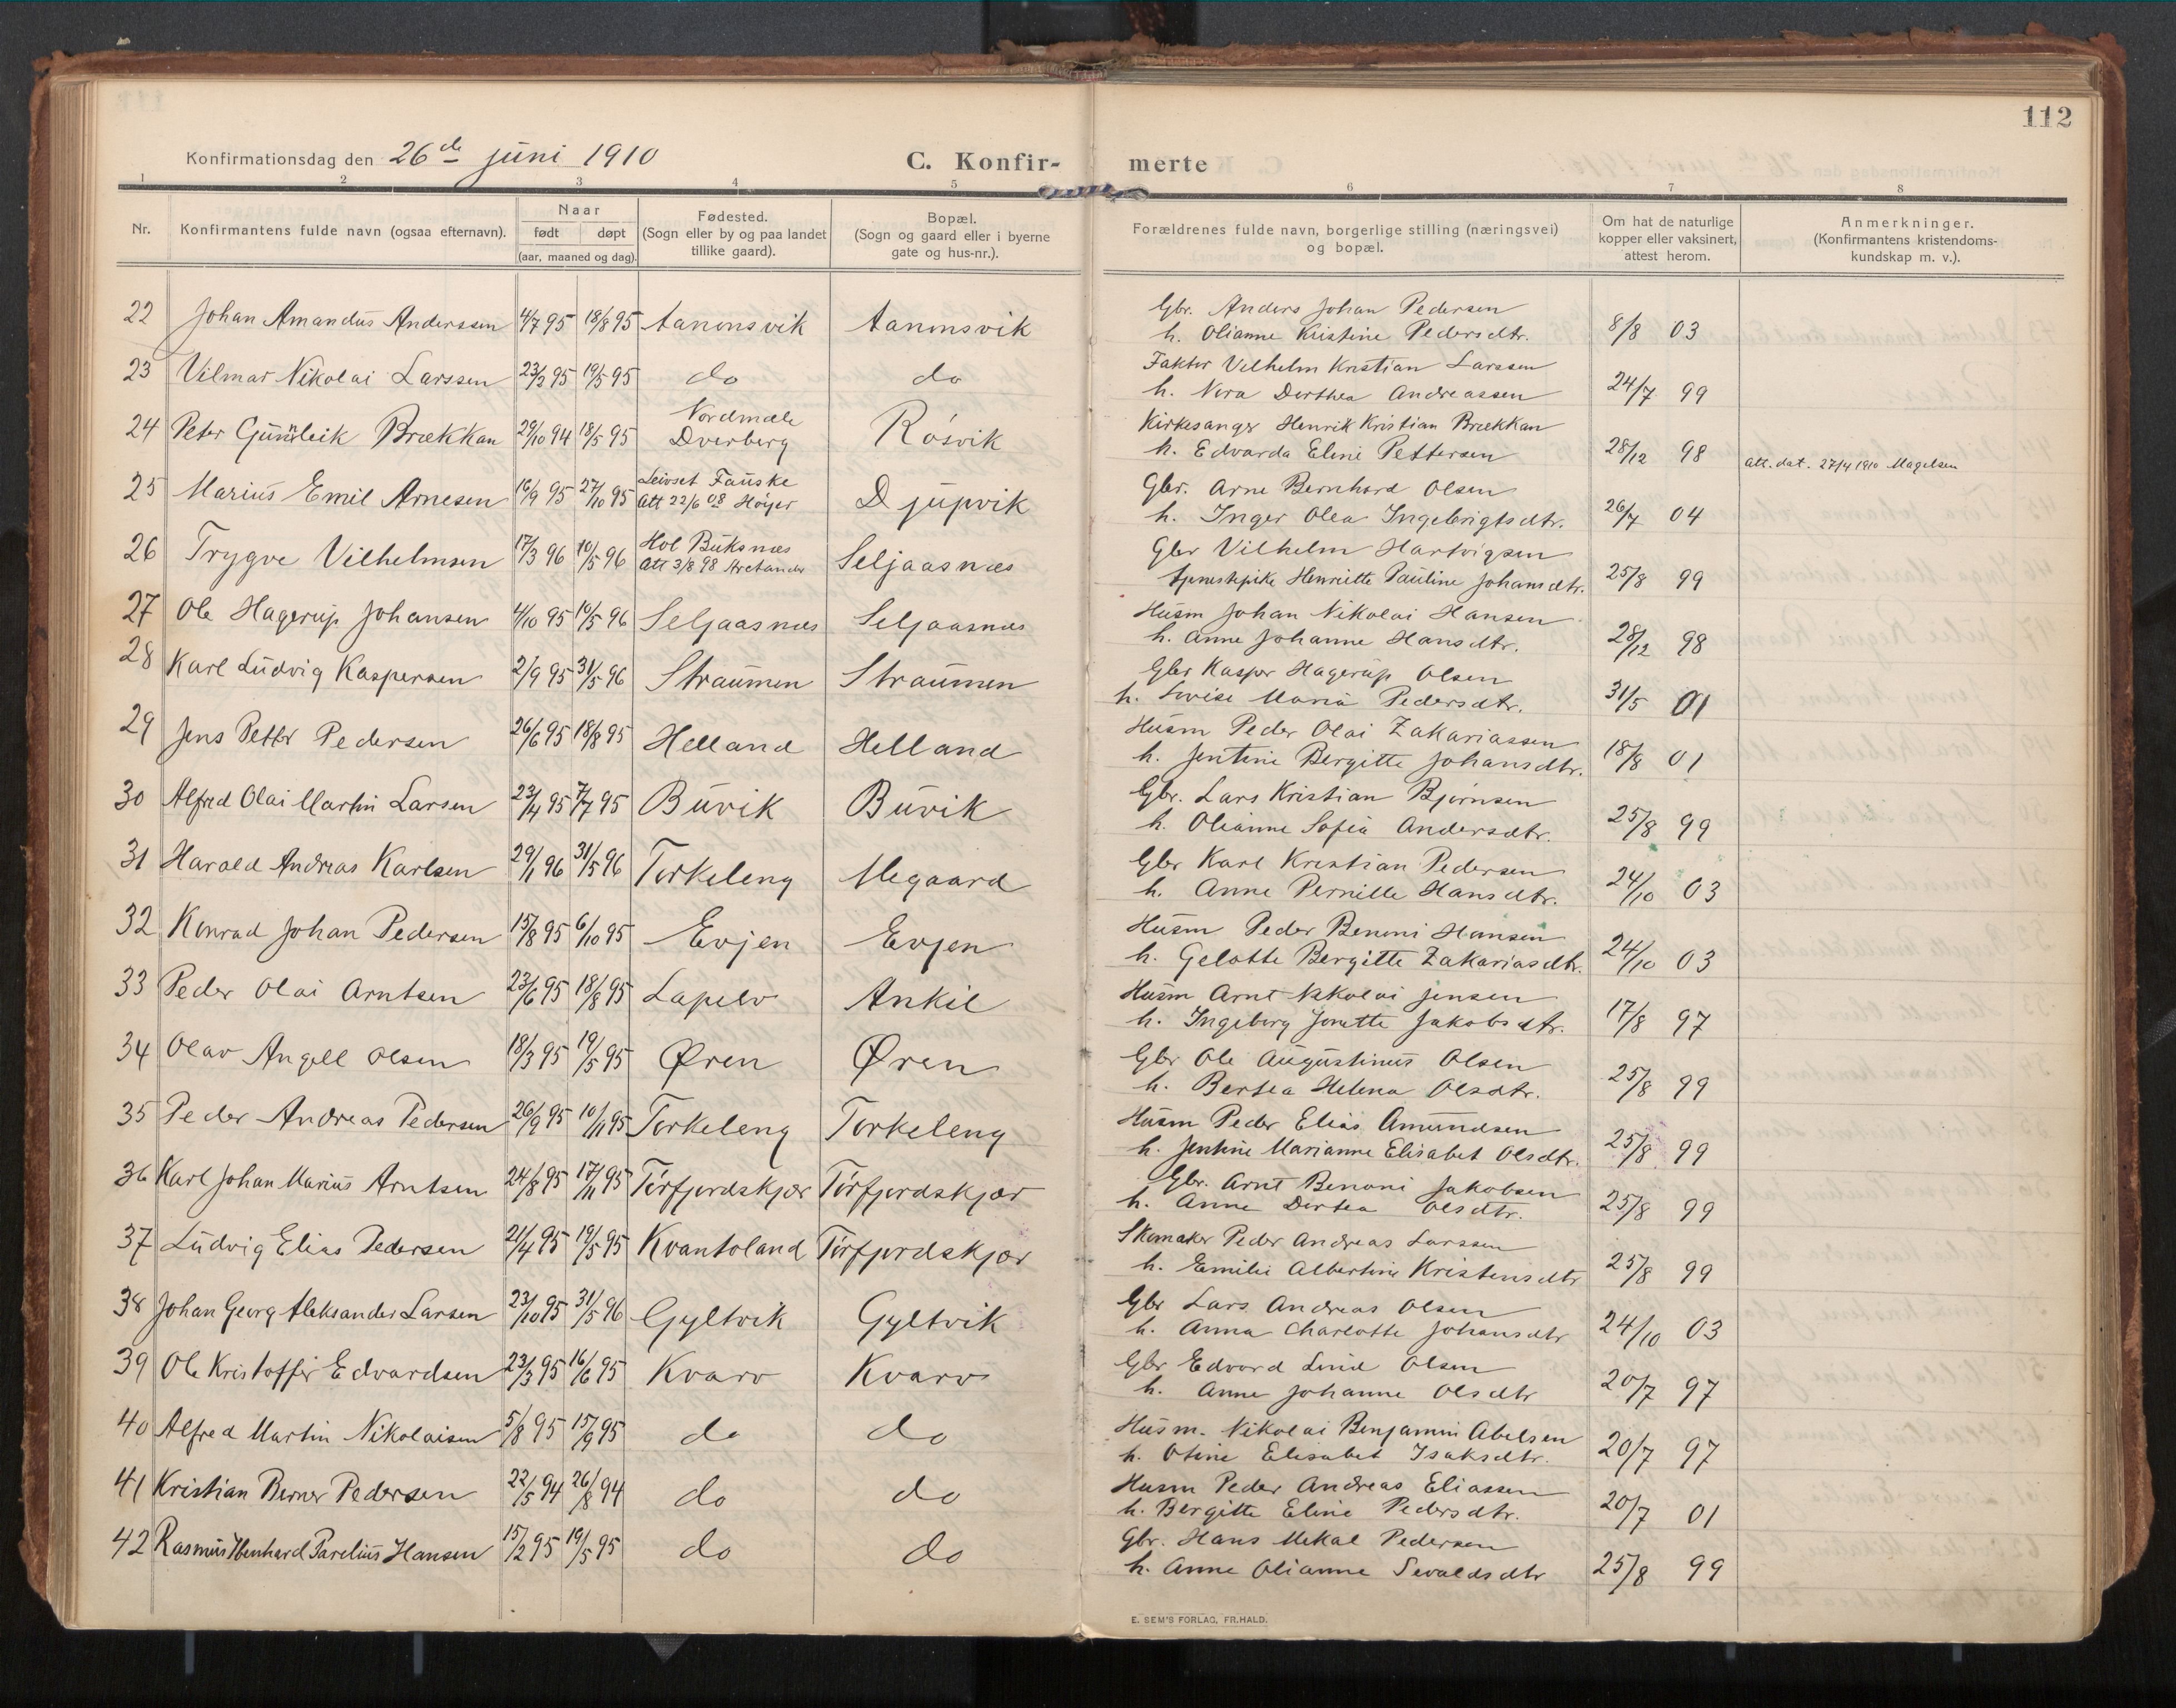 112
Konfirmationsdag den 26de juni 1910
C. Konfir-merte
1 2 3 4 5 6 7 8
Nr.
Konfirmantens fulde navn (ogsaa efternavn).
Naar
født døpt
(aar, maaned og dag).
Fødested.
(Sogn eller by og paa landet
tillike gaard).
Bopæl.
(Sogn og gaard eller i byerne
gate og hus-nr.).
Forældrenes fulde navn, borgerlige stilling (næringsvei)
og bopæl.
Om hat de naturlige
kopper eller vaksinert,
attest herom.
Anmerkninger.
(Konfirmantens kristendoms-
kundskap m. v.).
22 Johan Amandus Anderssen 4/7 95 18/8 95 Aanonsvik Aanonsvik
Gbr. Anders Johan Pedersen
h. Olianne Kristine Pedersdtr. 8/8 03
23 Vilmar Nikolai Larssen 23/2 95 19/5 95 do do
Faktor Vilhelm Kristian Larssen
h. Nora Dorthea Andreassen 24/7 99
24 Peter Gunnleik Brækkan 29/10 94 18/5 95 Nordmæle Dverberg Røsvik
Kirkesanger Henrik Kristian Brækkan
h. Edvarda Eline Pettersen 28/12 98 Att. dat. 27/4 1910 Magelsen
25 Marius Emil Arnesen 16/9 95 27/10 95 Leivset Fauske Att 22/6 08 Høyer Djupvik
Gbr. Arne Bernhard Olsen
h. Inger Olea Ingebrigtsdtr. 26/7 04
26 Trygve Vilhelmsen 17/3 96 10/5 96 Hol Buksnæs Att 3/8 98 Arctander Seljaasnæs
Gbr Vilhelm Hartvigsen
tjenestepike Henriette Pauline Johansdtr. 25/8 99
27 Ole Hagerup Johansen 4/10 95 10/5 96 Seljaasnæs Seljaasnæs
Husm Johan Nikolai Hansen
h. Anne Johanne Hansdtr. 28/12 98
28 Karl Ludvig Kaspersen 2/9 95 31/5 96 Straumen Straumen
Gbr Kasper Hagerup Olsen
h. Lovise Maria Pedersdtr. 31/5 01
29 Jens Petter Pedersen 26/6 95 18/8 95 Helland Helland
Husm Peder Olai Zakariassen
h. Jentine Bergitte Johansdtr. 18/8 01
30 Alfred Olai Martin Larsen 23/4 95 7/7 95 Buvik Buvik
Gbr. Lars Kristian Bjørnsen
h. Olianne Sofia Andersdtr. 25/8 99
31 Harald Andreas Karlsen 29/1 96 31/5 96 Torkeleng Megaard
Gbr Karl Kristian Pedersen
h. Anne Pernille Hansdtr. 24/10 03
32 Konrad Johan Pedersen 15/8 95 6/10 95 Evjen Evjen
Husm Peder Benoni Hansen
h. Gelotte Bergitte Zakariasdtr. 24/10 03
33 Peder Olai Arntsen 23/6 95 18/8 95 Lapelv Ankil
Husm Arnt Nikolai Jensen
h. Ingeborg Jonette Jakobsdtr. 17/8 97
34 Olav Angell Olsen 18/3 95 19/5 95 Øren Øren
Gbr Ole Augustinus Olsen
h. Bertea Helena Olsdtr. 25/8 99
35 Peder Andreas Pedersen 26/9 95 10/11 95 Torkeleng Torkeleng
Husm Peder Elias Amundsen
h. Jentine Marianne Elisabet Olsdtr. 25/8 99
36 Karl Johan Marius Arntsen 24/8 95 17/11 95 Tørfjordskjær Tørfjordskjær
Gbr. Arnt Benoni Jakobsen
h. Anne Dortea Olsdtr. 25/8 99
37 Ludvig Elias Pedersen 21/4 95 19/5 95 Kvantoland Tørfjordskjær
Skomaker Peder Andreas Larssen
h. Emilie Albertine Kristensdtr 25/8 99
38 Johan Georg Aleksander Larsen 23/10 95 31/5 96 Gyltvik Gyltvik
Gbr Lars Andreas Olsen
h. Anna Charlotte Johansdtr 24/10 03
39 Ole Kristoffer Edvardsen 23/3 95 16/6 95 Kvarv Kvarv
Gbr Edvard Lind Olsen
h. Anne Johanne Olsdtr 20/7 97
40 Alfred Martin Nikolaisen 5/8 95 15/9 95 do do
Husm. Nikolai Benjamin Abelsen
h. Otine Elisabet Isaksdtr. 20/7 97
41 Kristian Berner Pedersen 22/5 94 26/8 94 do do
Husm Peder Andreas Eliassen
h. Bergitte Eline Pedersdtr. 20/7 01
42 Rasmus Parelius Hansen 15/2 95 19/5 95 do do
Gbr. Hans Mekal Pedersen
h. Anne Olianne Sevaldsdtr 25/8 99
E. SEM'S FORLAG, FR.HALD.